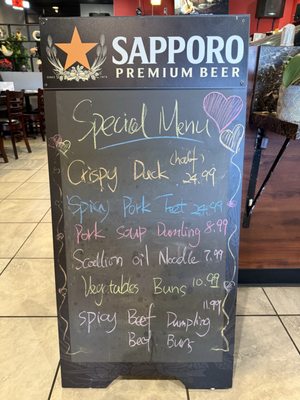 SAPPORO
PREMIUM BEER
Special Menu
Crispy Duck (half) 24.99
Spicy Pork Feet 24.99
Pork Soup Dumpling 8.99
Scallion oil Noodle 7.99
Vegetables Buns 10.99
Spicy Beef Dumpling 11.99
Beef Buns